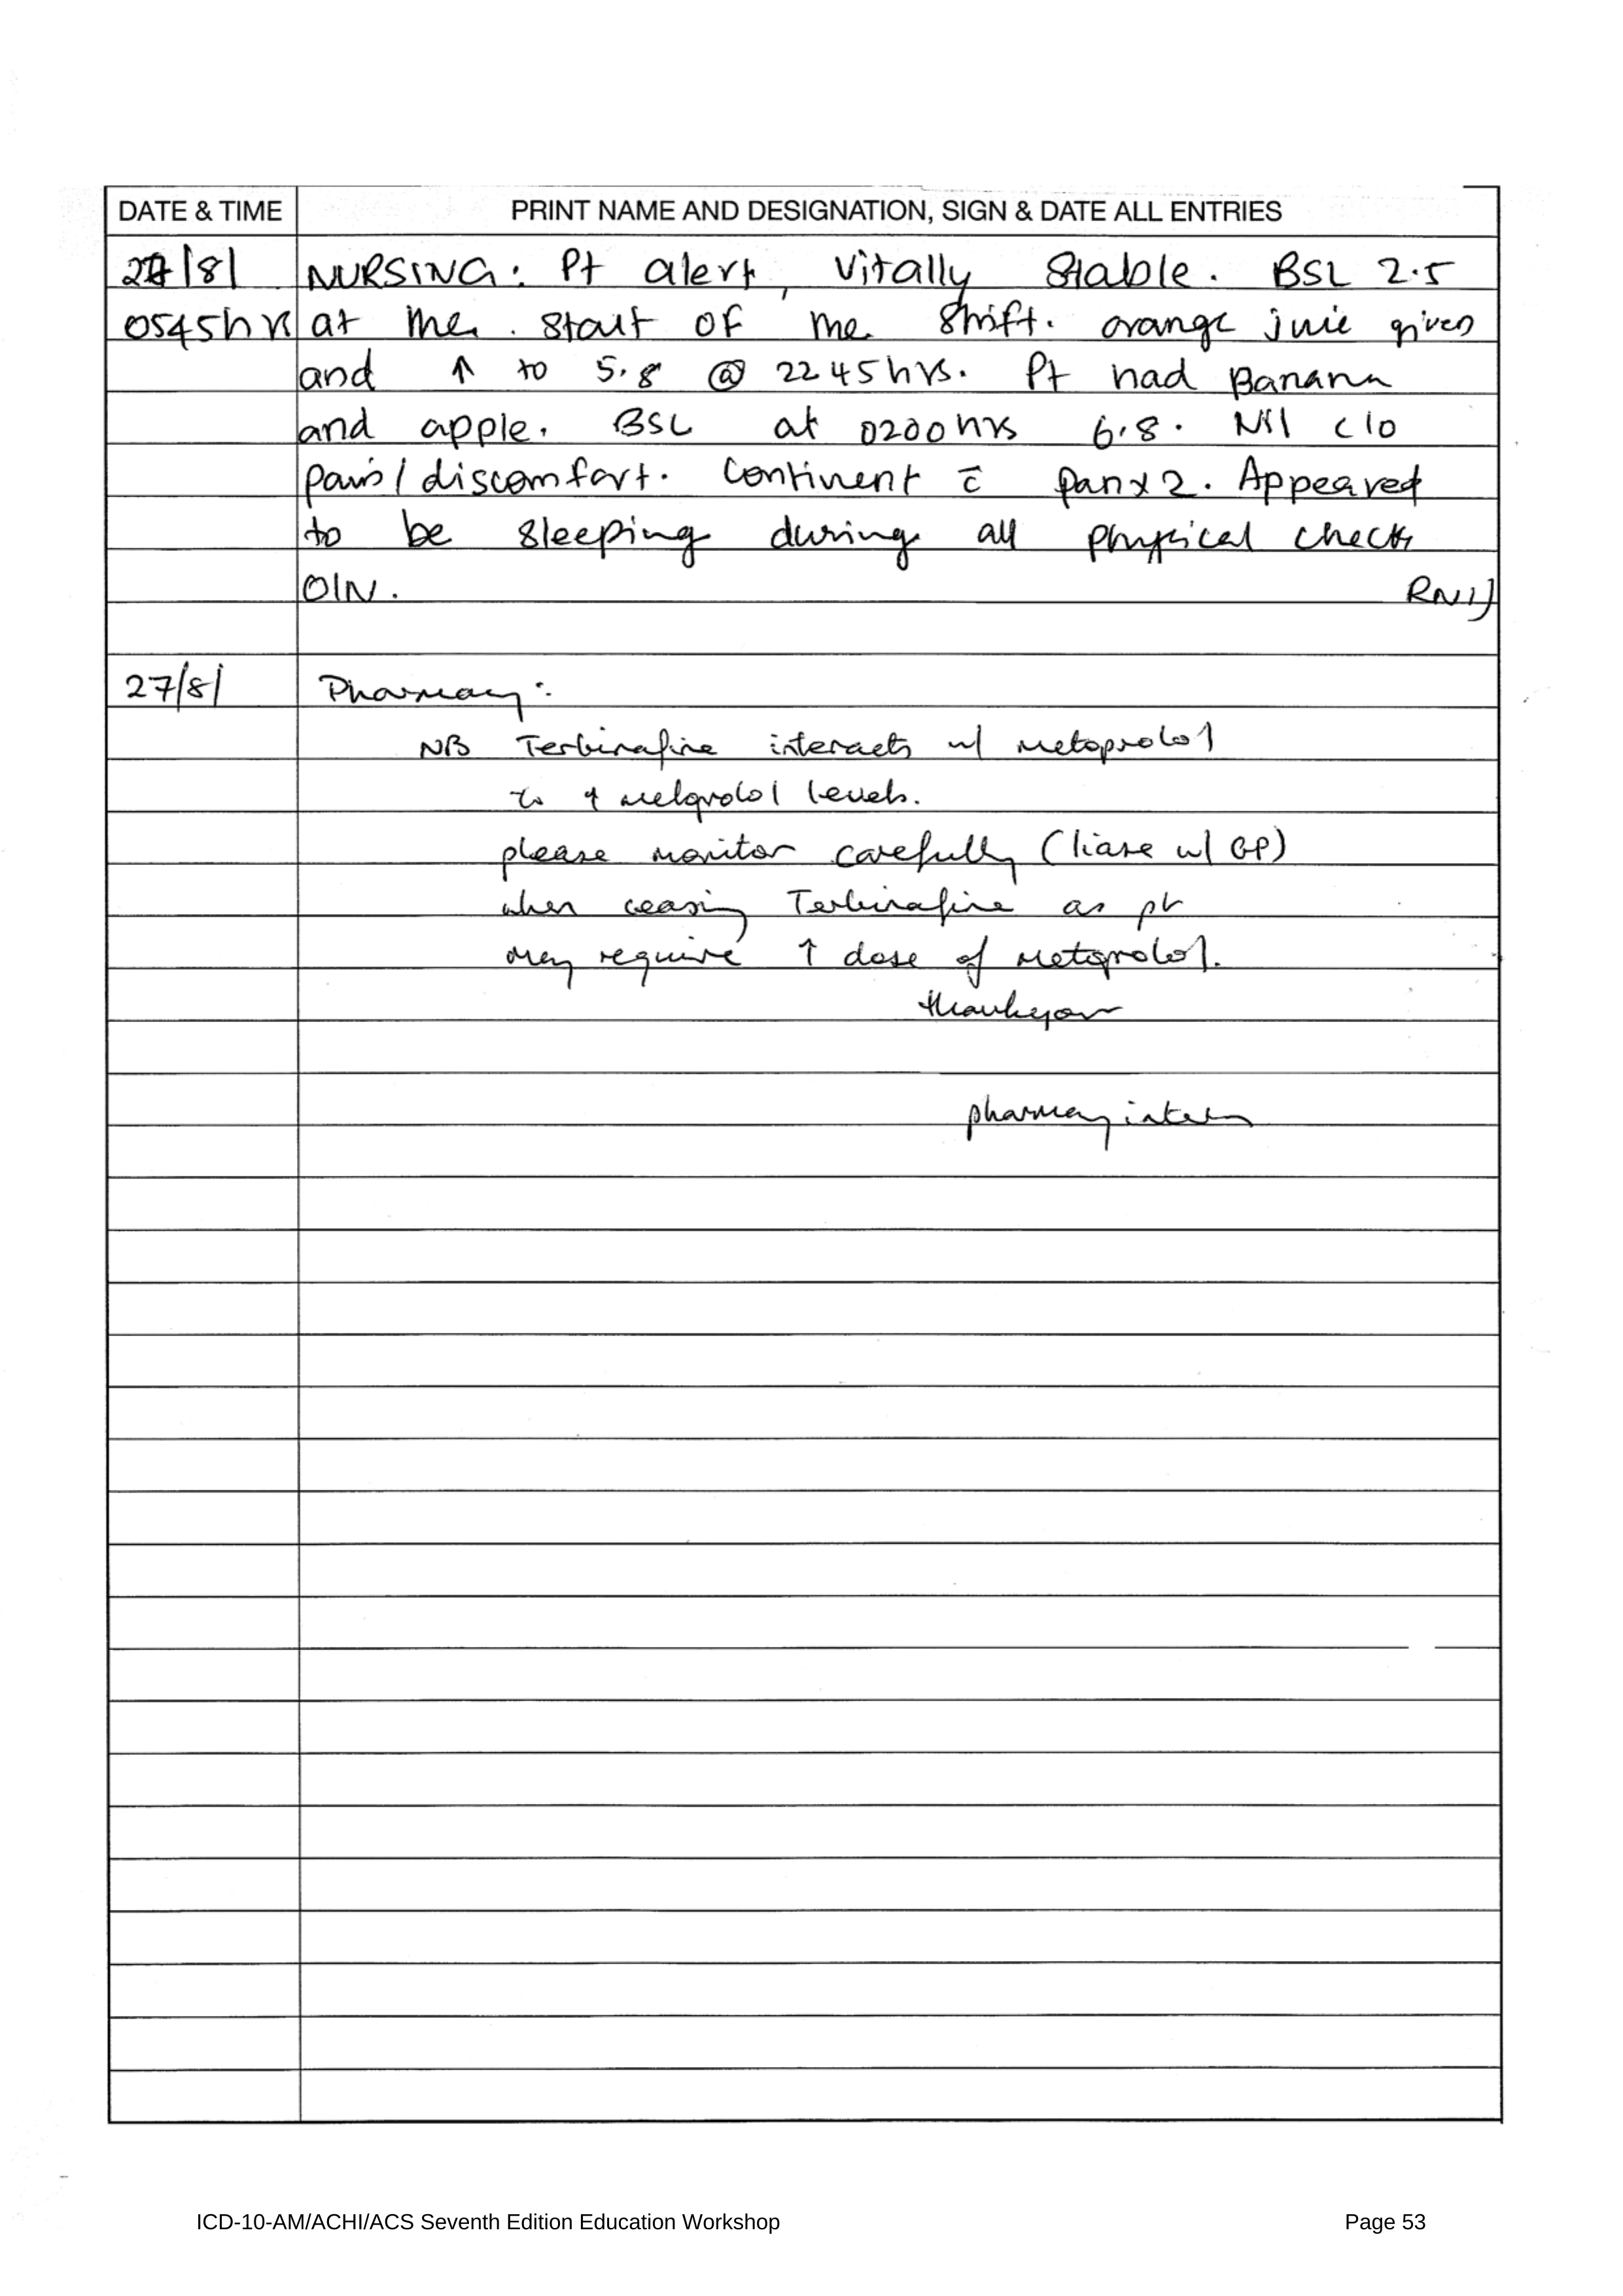 DATE & TIME PRINT NAME AND DESIGNATION, SIGN & DATE ALL ENTRIES
27/8/ NURSING: Pt alert, vitally stable. BSL 2.5
0545hrs at the start of the shift. orange juie given
and ↑ to 5.8 @ 2245hrs. Pt had Banana
and apple. BSL at 0200hrs 6.8. Nil c/o
pain/discomfort. Continent c̄ pan x 2. Appeared
to be sleeping during all physical checks
O/N. RN
27/8/ Pharmacy:
NB Terbinafine interacts w/ metoprolol
to ↑ metoprolol levels.
please monitor carefully (liase w/ GP)
when ceasing Terbinafine as pt
may require ↑ dose of metoprolol.
thankyou
pharmacy intern
ICD-10-AM/ACHI/ACS Seventh Edition Education Workshop Page 53